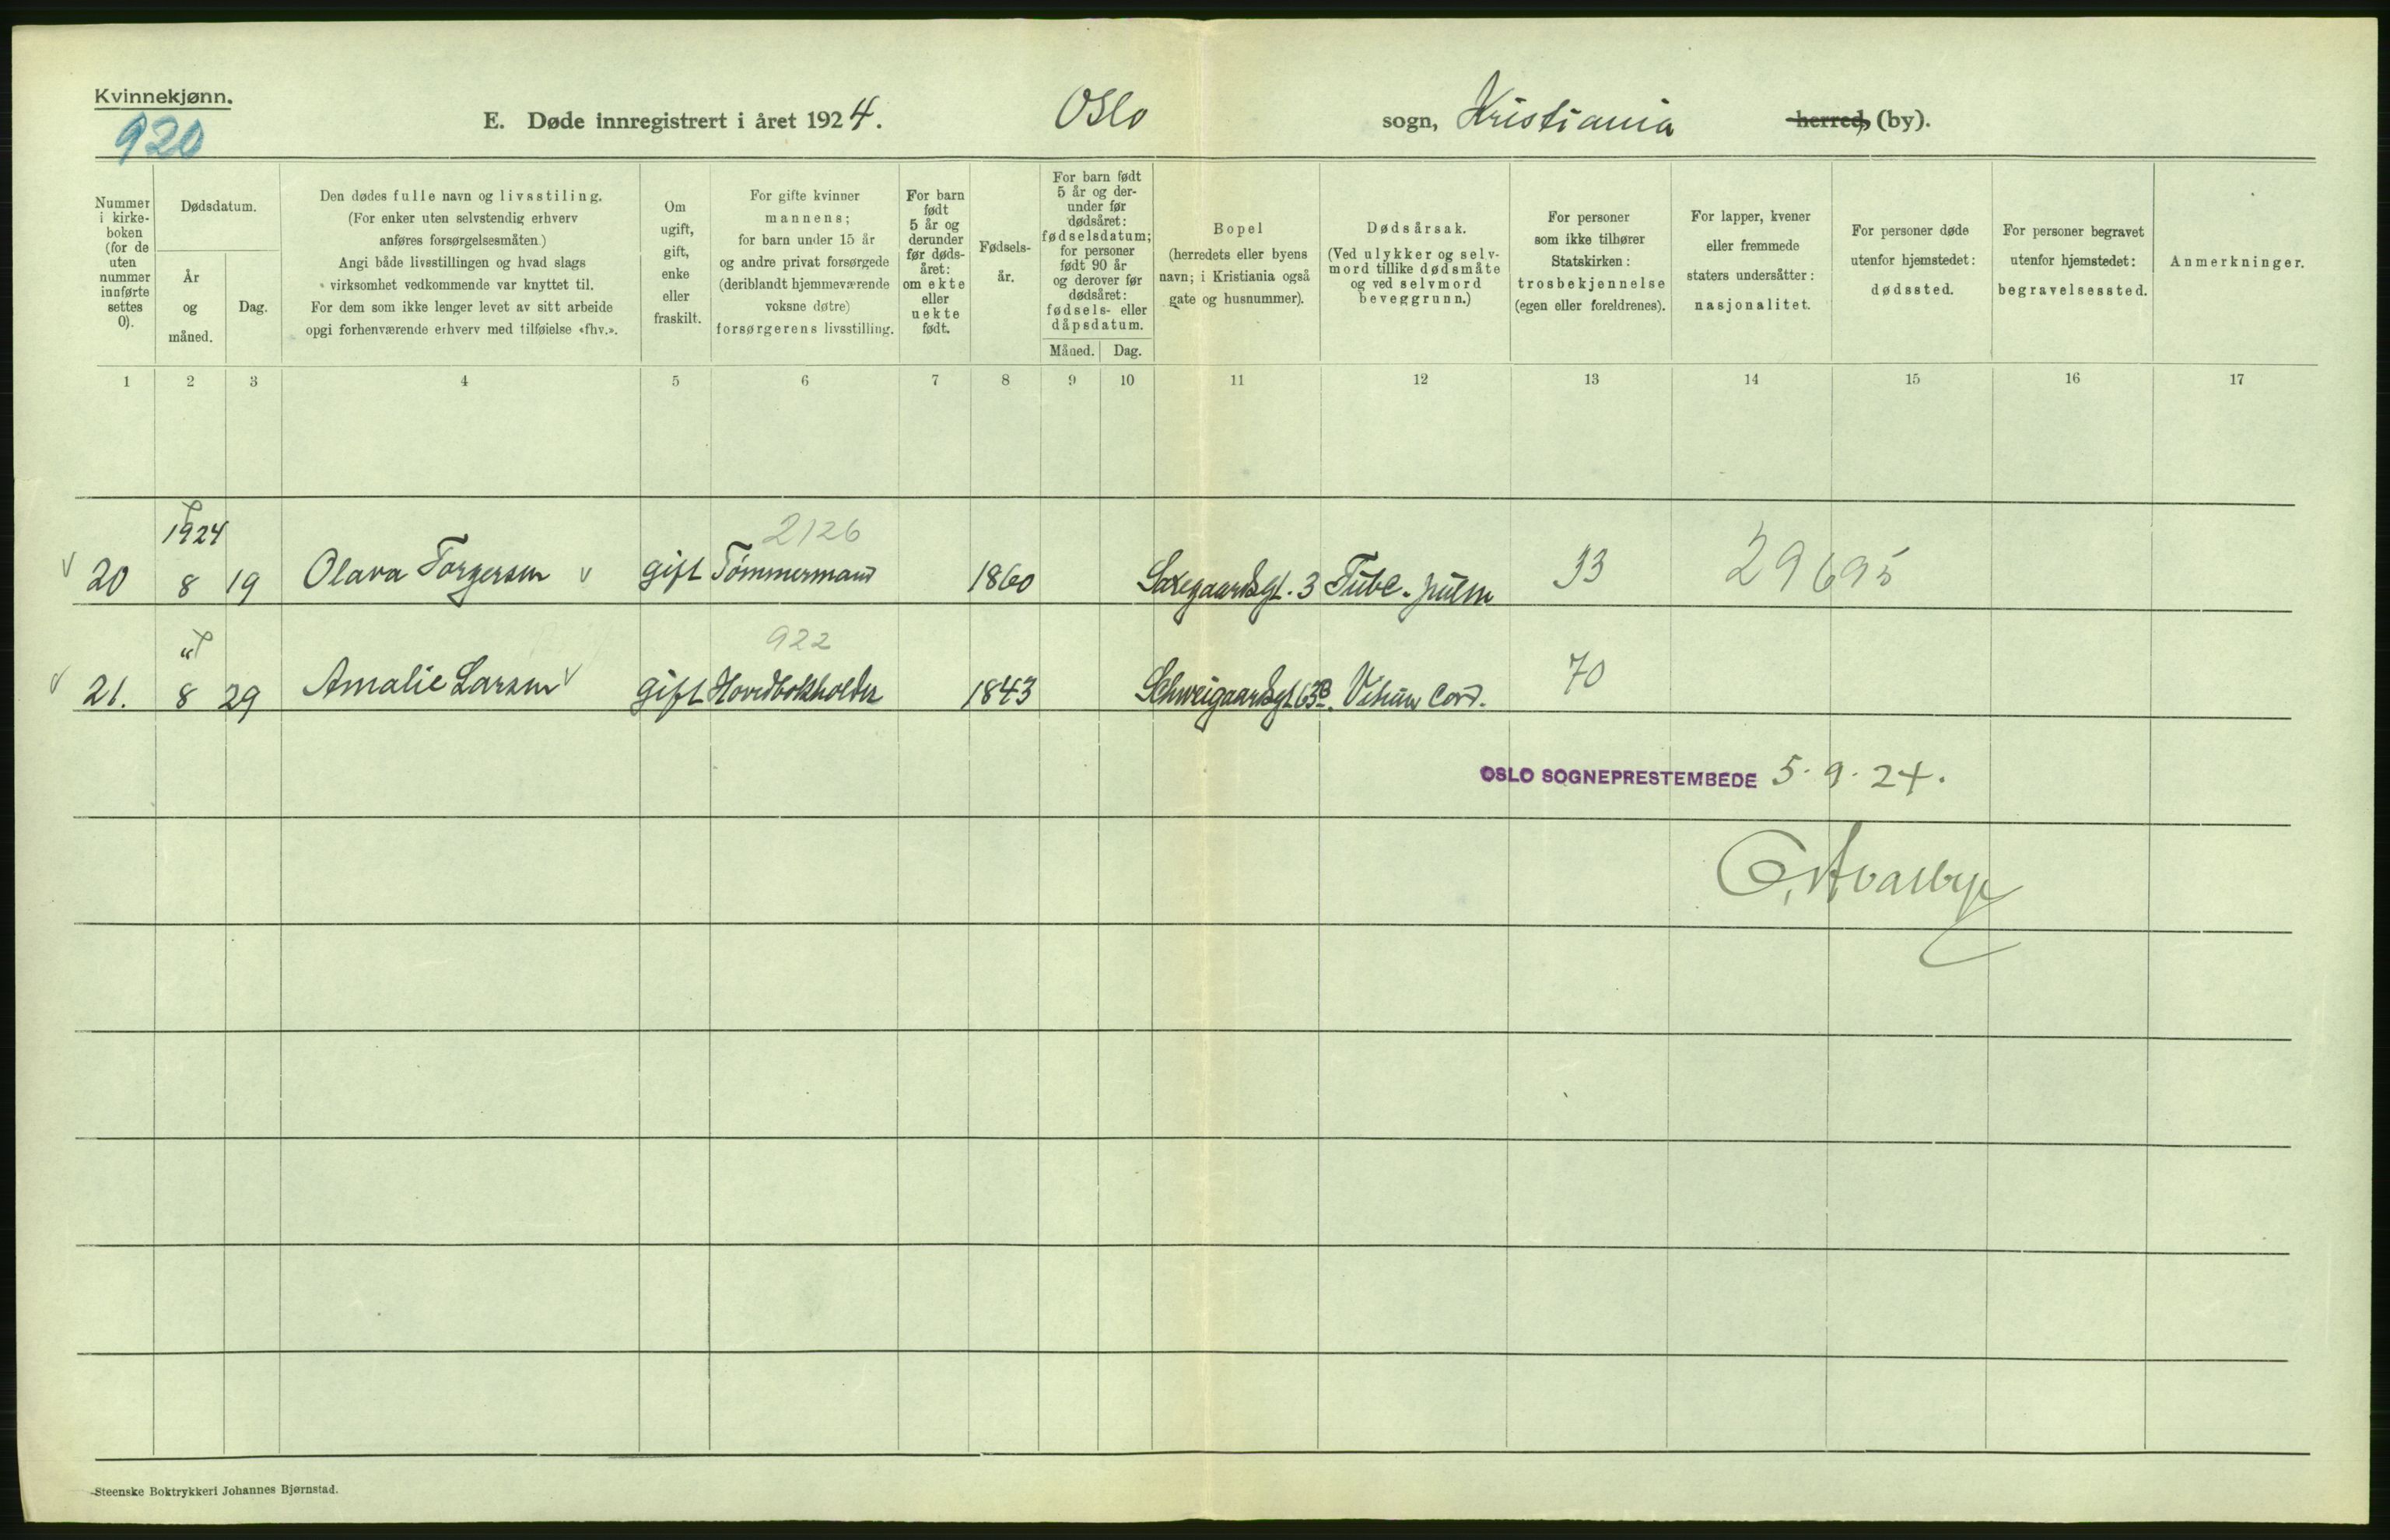 Kvinnekjønn.
920
E. Døde innregistrert i året 1924.
Oslo sogn, Kristiania herred, (by).
Nummer i kirkeboken (for de uten nummer innførte settes 0).
Dødsdatum.
År og måned.
Dag.
Den dødes fulle navn og livsstiling.
(For enker uten selvstendig erhverv
anføres forsørgelsesmåten.)
Angi både livsstillingen og hvad slags
virksomhet vedkommende var knyttet til.
For dem som ikke lenger levet av sitt arbeide
opgi forhenværende erhverv med tilføielse «fhv.».
Om ugift, gift, enke eller fraskilt.
For gifte kvinner
mannens;
for barn under 15 år
og andre privat forsørgede
(deriblandt hjemmeværende
voksne døtre)
forsørgerens livsstilling.
For barn født 5 år og derunder før dødsåret: om ekte eller uekte født.
Fødselsår.
For barn født 5 år og derunder før dødsåret: fødselsdatum; for personer født 90 år og derover før dødsåret: fødsels- eller dåpsdatum.
Måned. Dag.
Bopel
(herredets eller byens
navn; i Kristiania også
gate og husnummer).
Dødsårsak.
(Ved ulykker og selvmord tillike dødsmåte og ved selvmord beveggrunn.)
For personer
som ikke tilhører
Statskirken:
trosbekjennelse
(egen eller foreldrenes).
For lapper, kvener
eller fremmede
staters undersåtter:
nasjonalitet.
For personer døde
utenfor hjemstedet:
dødssted.
For personer begravet
utenfor hjemstedet:
begravelsessted.
Anmerkninger.
1 2 3 4 5 6 7 8 9 10 11 12 13 14 15 16 17
1924 2126
20 8 19 Olava Torgersen gift Tømmermand 1860 Saxegaardsgt. 3 Tube. pulm 33 29695
" 922
21. 8 29 Amalie Larsen gift Hovedbokholder 1843 Schweigaardsgt 63B. Vitium Cord. 70
OSLO SOGNEPRESTEMBEDE 5.9.24.
Steenske Boktrykkeri Johannes Bjørnstad.